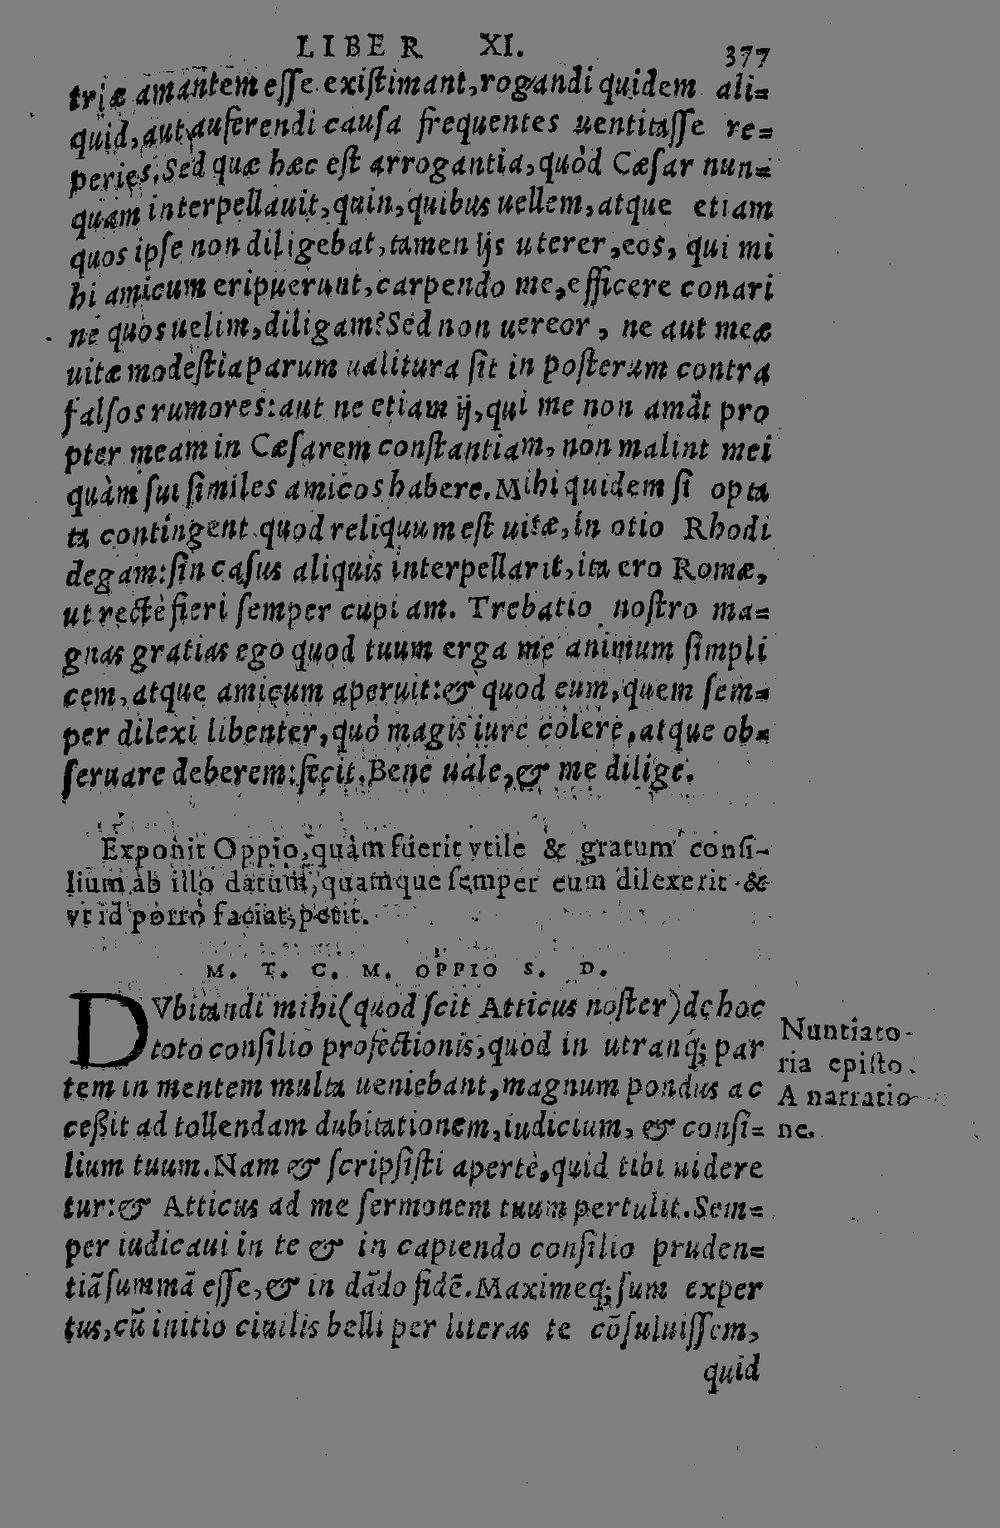 LIBER XI. 377
triæ amantem eſſe exiſtimant, rogandi quidem ali=
quid, aut auferendi cauſa frequentes uentitaſſe re=
peries. Sed quæ hæc eſt arrogantia, quòd Cæſar nun=
quam interpellauit, quin, quibus uellem, atque etiam
quos ipſe non diligebat, tamen ijs uterer, eos, qui mi
hi amicum eripuerunt, carpendo me, efficere conari
ne quos uelim, diligam? Sed non uereor, ne aut meæ
uitæ modeſtia parum ualitura ſit in poſterum contra
falſos rumores: aut ne etiam ij, qui me non amāt pro
pter meam in Cæſarem conſtantiam, non malint mei
quàm ſui ſimiles amicos habere. Mihi quidem ſi opta
ta contingent quod reliquum eſt uitæ, in otio Rhodi
degam: ſin caſus aliquis interpellarit, ita ero Romæ,
ut rectè fieri ſemper cupiam. Trebatio noſtro ma=
gnas gratias ego quod tuum erga me animum ſimpli
cem, atque amicum aperuit: & quod eum, quem ſem=
per dilexi libenter, quò magis iure colere, atque ob=
ſeruare deberem: fecit. Bene uale, & me dilige.
Exponit Oppio, quàm fuerit vtile & gratum conſi-
lium ab illo datum, quamque ſemper eum dilexerit &
vt id porrò faciat, petit.
M. T. C. M. OPPIO S. D.
DVbitandi mihi (quod ſcit Atticus noſter) de hoc
toto conſilio profectionis, quòd in utranq; par
tem in mentem multa ueniebant, magnum pondus ac
ceßit ad tollendam dubitationem, iudicium, & conſi=
lium tuum. Nam & ſcripſiſti apertè, quid tibi uidere
tur: & Atticus ad me ſermonem tuum pertulit. Sem=
per iudicaui in te & in capiendo conſilio pruden=
tiā ſummā eſſe, & in dādo fidē. Maximeq; ſum exper
tus, cū initio ciuilis belli per literas te cōſuluiſſem,
quid
Nuntiato-
ria epiſto.
A narratio
ne.